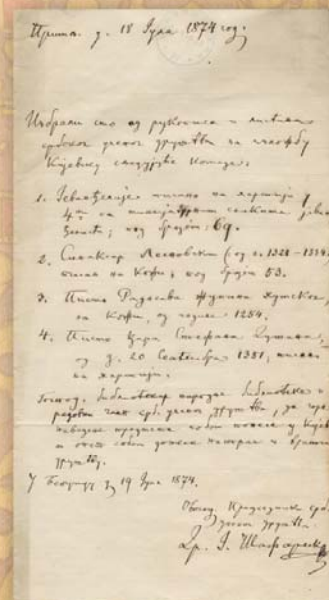 Прим. д. 18 Јула 1874 год.
Изабрали смо од рукописа и
србског ученог друштва за изложбу
Кијевску следујуће комаде:
1. Јеванђелије писано на хартији у
4ни са сликама
под бројем: 69.
2. Синаксар Лесновски (од г. 1328 – 13
писан на кожи, под бројем 53.
3. Писмо Радосава жупана
на кожи, од године 1254.
4. Писмо Цара Стефана Душана,
од д. 20 Септембра 1351, писано
на хартији.
Господ. библиотекар народне библиотеке и
редовни члан срб. ученог друштва, да горе
наведене предмете собом понесе у Кијев
и опет собом донесе натраг и врати
друштву.
У Београду 19 Јула 1874.
Председник срб.
ученог друштва
Др. Ј. Шафарик